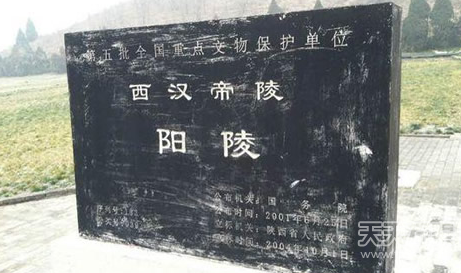 第五批全国重点文物保护单位
西汉帝陵
阳陵
公布机关:国务院
公布时间:2001年6月25日
立标机关:陕西省人民政府
立标时间:2004年10月1日
序列号: